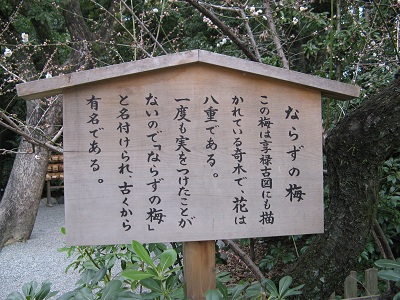 ならずの梅
この梅は享禄古図にも描
かれている奇木で、花は
八重である。
一度も実をつけたことが
ないので「ならずの梅」
と名付けられ、古くから
有名である。